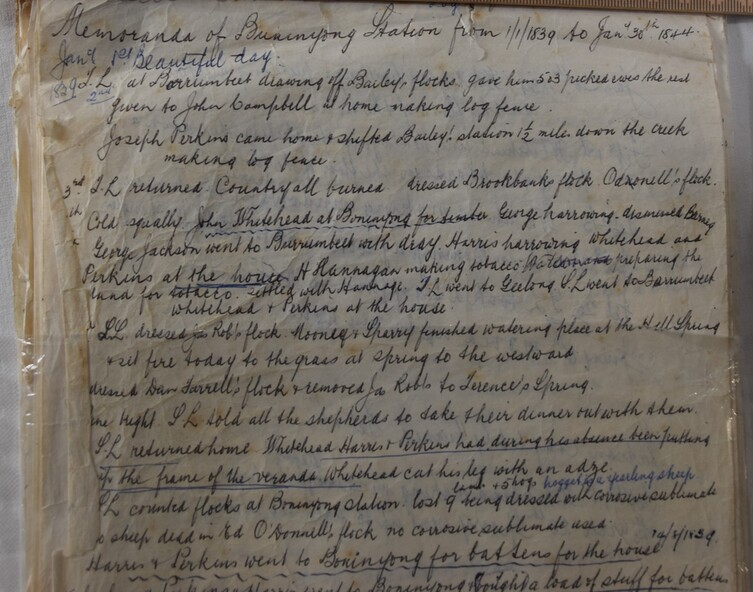 Memoranda of Buninyong Station from 1/1/1839 to Jany 30th 1844.
Jany 1st Beautiful day.
1839 T.L. at Burrumbeet drawing off Bailey's flocks. gave him 503 picked ewes the rest
2nd given to John Campbell at home making log fence.
Joseph Perkins came home & shifted Bailey's station 1½ miles down the creek
making log fence.
3rd T.L returned Country all burned dressed Brookbanks flock Odonell's flock.
th Cold squally. John Whitehead at Boninyong for timber. George harrowing. dismissed Barney
George Jackson went to Burrumbeet with dray. Harris harrowing Whitehead and
Perkins at the house H Hannagan making tobacco preparing the
land for tobacco. settled with Hannage. T.L went to Geelong S.L went to Burrumbeet
Whitehead & Perkins at the house.
S.L. dressed Jas Rob's flock. Mooney & Sparry finished watering place at the Hill Spring
& set fire today to the grass at spring to the westward
dressed Dan Farrell's flock & removed Jas Robs to Terence's Spring.
me hight. S.L told all the shepherds to take their dinner out with them.
S.L returned home Whitehead Harris & Perkins had during his absence been putting
up the frame of the veranda. Whitehead cut his leg with an adze.
lams + 5 hogs hoggets & sperling sheep
S.L counted flocks at Boninyong station. lost 9 being dressed with corrosive sublimate
sheep dead in Ed O'Donnell's flock no corrosive sublimate used.
14/8/1839
Harris & Perkins went to Boninyong for battens for the house
Harris went to Boninyong & bought a load of stuff for battens